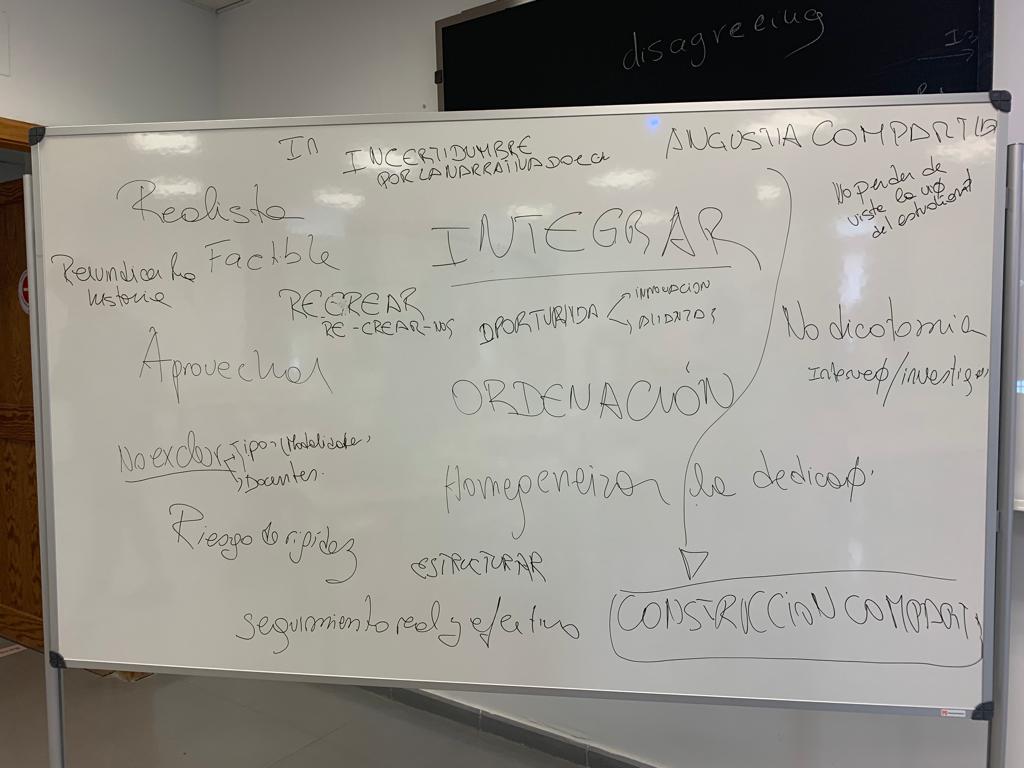 disagreeing
In
INCERTIDUMBRE
POR LA NARRATIVA DOCU
ANGUSTIA COMPARTID
No perder de
vista la viø
del estudiant
Realista
INTEGRAR
Factible
Reivindicar la
historia
RECREAR
RE-CREAR-NOS
OPORTUNIDA
INNOVACION
ALIANZAS
No dicotomia
Intervø/investigas
Aprovechar
ORDENACIÓN
No excluir
Tipos (Modalidades
Docentes.
Homogeneizar la dedicaø.
Riesgo de rigidez
ESTRUCTURAR
seguimiento real y efectivo
CONSTRUCCION COMPART